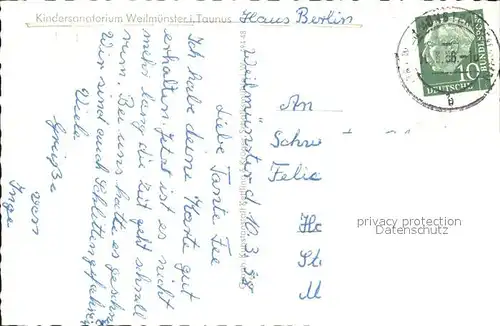 Kindersanatorium Weilmünster i. Taunus Haus Berlin
Weilmünster d. 10.3.58
Liebe Tante Fee
Ich habe deine Karte gut
erhalten. Jetzt ist es nicht
mehr lang die Zeit geht schnell
rum. Bei uns hatte es geschneit
Wir sind auch Schlittengefahren
Viele
Grüße
von
Inge
An
Schw
Felic
Ho
St
M
privacy protection
Datenschutz
10
DEUTSCHE
BUNDESPOST
b